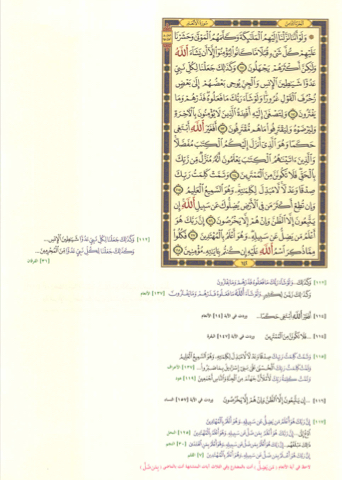 الجزء الثامن
سورة الأنعام
۞ وَلَوْ أَنَّنَا نَزَّلْنَا إِلَيْهِمُ الْمَلَٰئِكَةَ وَكَلَّمَهُمُ الْمَوْتَىٰ وَحَشَرْنَا
عَلَيْهِمْ كُلَّ شَيْءٍ قُبُلًا مَّا كَانُوا لِيُؤْمِنُوا إِلَّا أَن يَشَاءَ اللَّهُ
وَلَٰكِنَّ أَكْثَرَهُمْ يَجْهَلُونَ ۝ وَكَذَٰلِكَ جَعَلْنَا لِكُلِّ نَبِيٍّ
عَدُوًّا شَيَٰطِينَ الْإِنسِ وَالْجِنِّ يُوحِي بَعْضُهُمْ إِلَىٰ بَعْضٍ
زُخْرُفَ الْقَوْلِ غُرُورًا وَلَوْ شَاءَ رَبُّكَ مَا فَعَلُوهُ فَذَرْهُمْ وَمَا
يَفْتَرُونَ ۝ وَلِتَصْغَىٰ إِلَيْهِ أَفْئِدَةُ الَّذِينَ لَا يُؤْمِنُونَ بِالْآخِرَةِ
وَلِيَرْضَوْهُ وَلِيَقْتَرِفُوا مَا هُم مُّقْتَرِفُونَ ۝ أَفَغَيْرَ اللَّهِ أَبْتَغِي
حَكَمًا وَهُوَ الَّذِي أَنزَلَ إِلَيْكُمُ الْكِتَٰبَ مُفَصَّلًا
وَالَّذِينَ ءَاتَيْنَٰهُمُ الْكِتَٰبَ يَعْلَمُونَ أَنَّهُ مُنَزَّلٌ مِّن رَّبِّكَ
بِالْحَقِّ فَلَا تَكُونَنَّ مِنَ الْمُمْتَرِينَ ۝ وَتَمَّتْ كَلِمَتُ رَبِّكَ
صِدْقًا وَعَدْلًا لَّا مُبَدِّلَ لِكَلِمَٰتِهِ وَهُوَ السَّمِيعُ الْعَلِيمُ ۝
وَإِن تُطِعْ أَكْثَرَ مَن فِي الْأَرْضِ يُضِلُّوكَ عَن سَبِيلِ اللَّهِ إِن
يَتَّبِعُونَ إِلَّا الظَّنَّ وَإِنْ هُمْ إِلَّا يَخْرُصُونَ ۝ إِنَّ رَبَّكَ هُوَ
أَعْلَمُ مَن يَضِلُّ عَن سَبِيلِهِ وَهُوَ أَعْلَمُ بِالْمُهْتَدِينَ ۝ فَكُلُوا
مِمَّا ذُكِرَ اسْمُ اللَّهِ عَلَيْهِ إِن كُنتُم بِـَٔايَٰتِهِ مُؤْمِنِينَ ۝
[١١٢] وَكَذَٰلِكَ جَعَلْنَا لِكُلِّ نَبِيٍّ عَدُوًّا شَيَٰطِينَ الْإِنسِ ...
وَكَذَٰلِكَ جَعَلْنَا لِكُلِّ نَبِيٍّ عَدُوًّا مِّنَ الْمُجْرِمِينَ ...
[٣١] الفرقان
[١١٢] وَكَذَٰلِكَ ... وَلَوْ شَاءَ رَبُّكَ مَا فَعَلُوهُ فَذَرْهُمْ وَمَا يَفْتَرُونَ
وَلَوْ شَاءَ اللَّهُ مَا فَعَلُوهُ فَذَرْهُمْ وَمَا يَفْتَرُونَ [١٣٧] الأنعام
[١١٤] أَفَغَيْرَ اللَّهِ أَبْتَغِي حَكَمًا ...
[١١٤] ... فَلَا تَكُونَنَّ مِنَ الْمُمْتَرِينَ وردت في الآية [١٤٧] البقرة
[١١٥] وَتَمَّتْ كَلِمَتُ رَبِّكَ صِدْقًا وَعَدْلًا لَّا مُبَدِّلَ لِكَلِمَٰتِهِ وَهُوَ السَّمِيعُ الْعَلِيمُ
وَتَمَّتْ كَلِمَتُ رَبِّكَ الْحُسْنَىٰ عَلَىٰ بَنِي إِسْرَٰءِيلَ بِمَا صَبَرُوا ... [١٣٧] الأعراف
وَتَمَّتْ كَلِمَةُ رَبِّكَ لَأَمْلَأَنَّ جَهَنَّمَ مِنَ الْجِنَّةِ وَالنَّاسِ أَجْمَعِينَ [١١٩] هود
[١١٦] ... إِن يَتَّبِعُونَ إِلَّا الظَّنَّ وَإِنْ هُمْ إِلَّا يَخْرُصُونَ وردت في الآية [١٥٧] النساء
[١١٧] إِنَّ رَبَّكَ هُوَ أَعْلَمُ مَن يَضِلُّ عَن سَبِيلِهِ وَهُوَ أَعْلَمُ بِالْمُهْتَدِينَ
[١٢٥] النحل
[٣٠] النجم
[٧] القلم